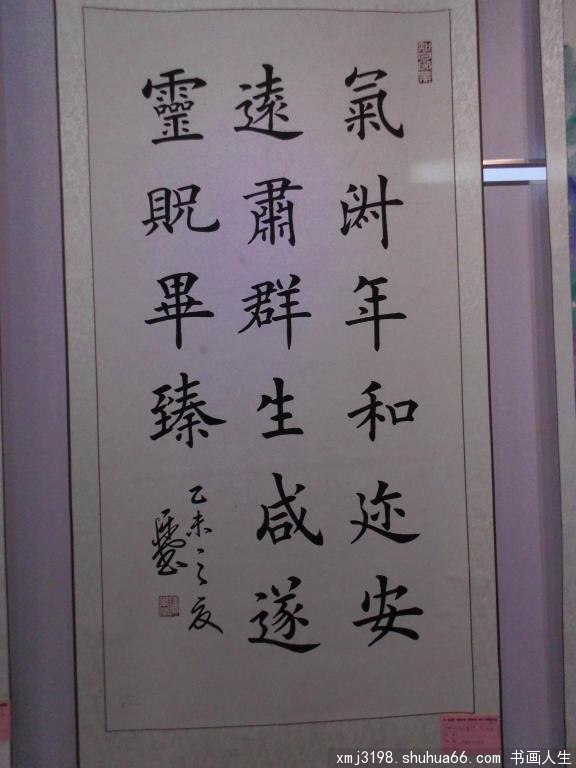 氣淑年和迩安
遠肅群生咸遂
靈貺畢臻
乙未之夏
xmj3198.shuhua66.com 书画人生